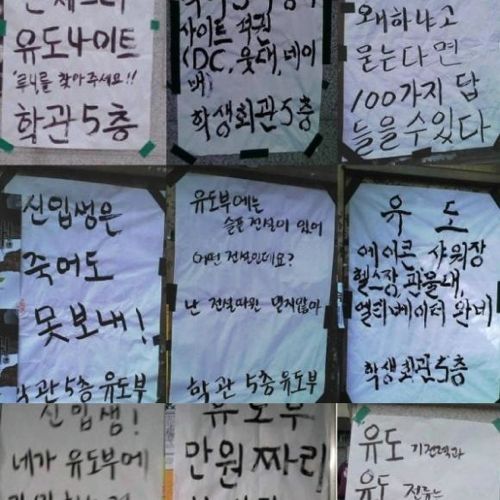 유도나이트
'루니를 찾아주세요!!
학관 5층
사이트 석권
(DC, 웃대, 네이
버)
학생회관 5층
왜하냐고
묻는다면
100가지 답
들을수있다
신입생은
죽어도
못보내!
학관 5층 유도부
유도부에는
슬픈 전설이 있어
어떤 전설인데요?
난 전설따윈 믿지않아
학관 5층 유도부
유 도
에어콘 샤워장
헬스장, 관물대,
엘리베이터 완비
학생회관 5층
신입생!
네가 유도부에
유도부
만원짜리
유도 기전력과
유도 전류는